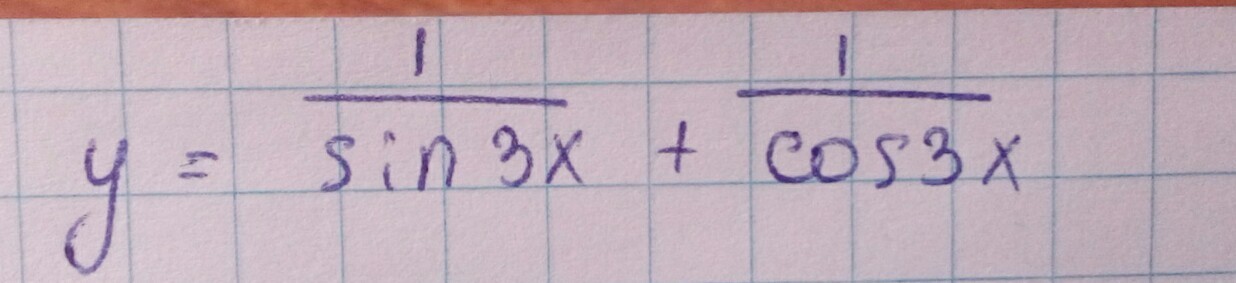 y = 1/sin 3x + 1/cos 3x